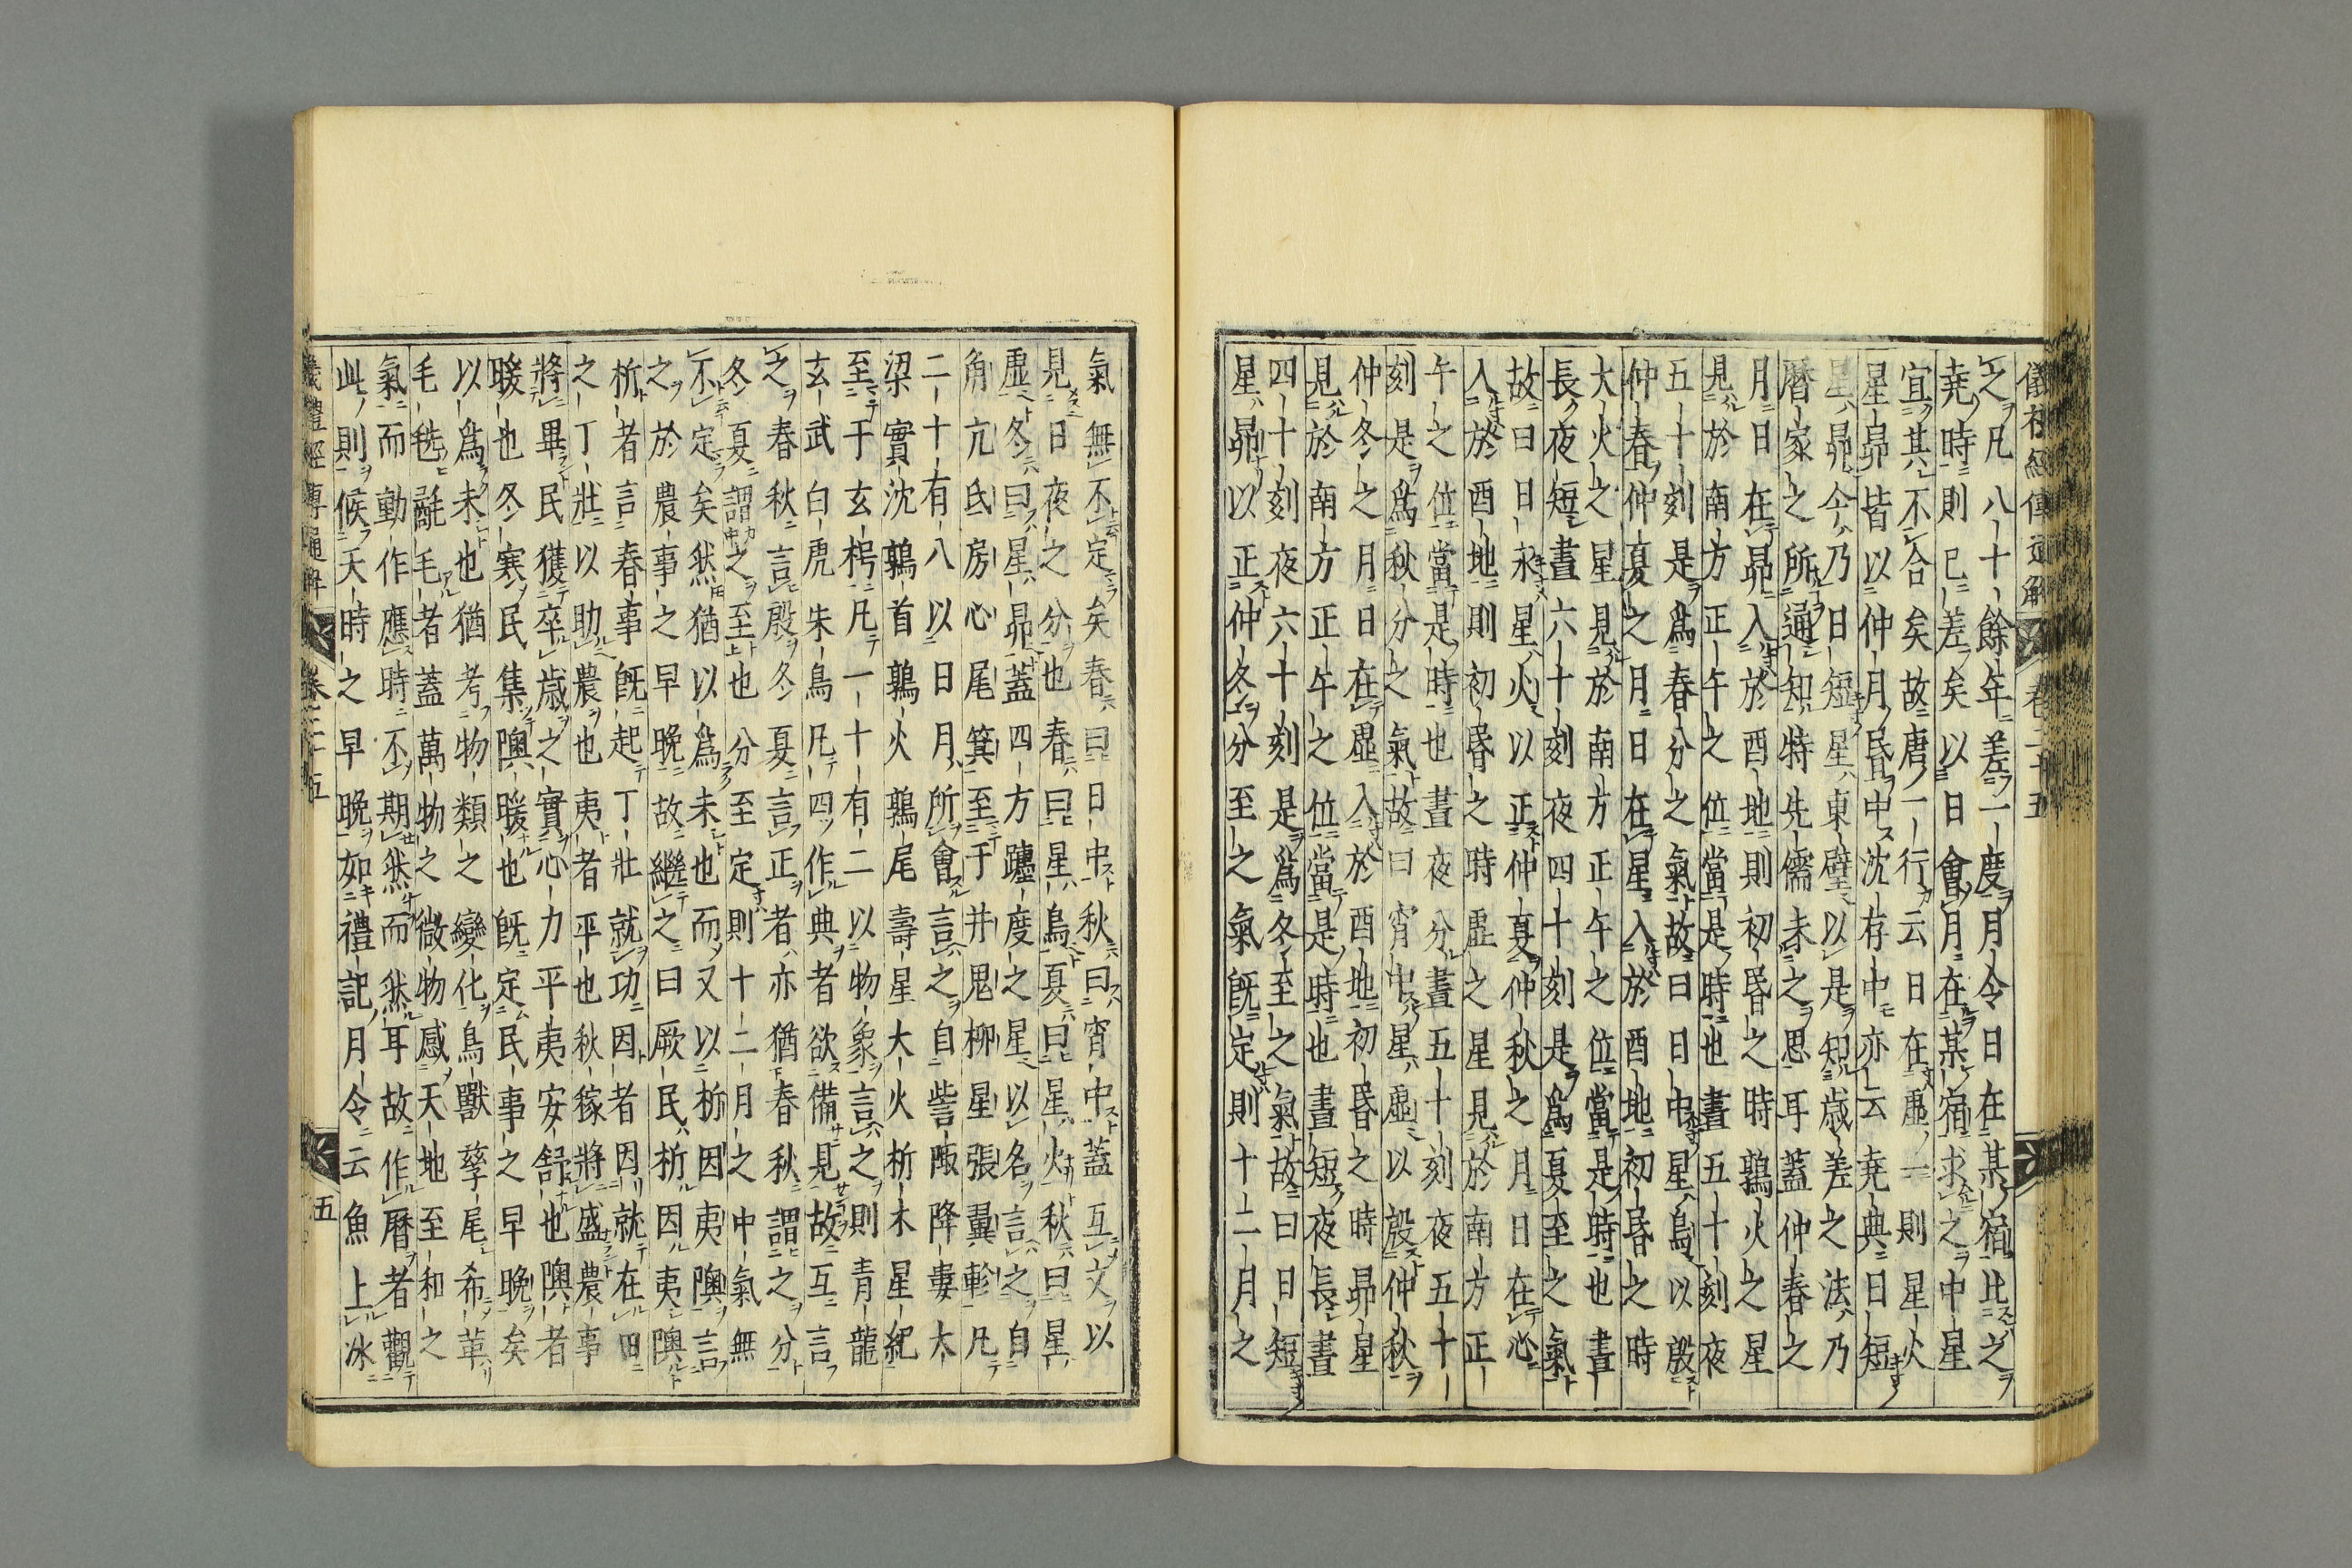 儀禮經傳通解 卷二十五
之凡八十餘年差一度月令日在某宿比之
堯時則已差矣以日會月在某宿求之中星
宜其不合矣故唐一行云日在虛一則星火
星昴皆以仲月昏中沈存中亦云堯典日短
星昴今乃日短星東壁以是知歲差之法乃
曆家之所通知特先儒未之思耳蓋仲春之
月日在昴入於酉地則初昏之時鶉火之星
見於南方正午之位當是時也晝五十刻夜
五十刻是爲春分之氣故曰日中星鳥以殷
仲春仲夏之月日在星入於酉地初昏之時
大火之星見於南方正午之位當是時也晝
長夜短晝六十刻夜四十刻是爲夏至之氣
故曰日永星火以正仲夏仲秋之月日在心
入於酉地則初昏之時虛之星見於南方正
午之位當是時也晝夜分晝五十刻夜五十
刻是爲秋分之氣故曰宵中星虛以殷仲秋
仲冬之月日在虛入於酉地初昏之時昴星
見於南方正午之位當是時也晝短夜長晝
四十刻夜六十刻是爲冬至之氣故曰日短
星昴以正仲冬分至之氣既定則十二月之
氣無不定矣春曰日中秋曰宵中蓋互文以
見日夜之分也春曰星鳥夏曰星火秋曰星
虛冬曰星昴蓋四方躔度之星以名言之自
角亢氐房心尾箕至于井鬼柳星張翼軫凡
二十有八以日月所會言之自訾陬降婁大
梁實沈鶉首鶉火鶉尾壽星大火析木星紀
至于玄枵凡一十有二以物象言之則青龍
玄武白虎朱鳥凡四作典者欲備見故互言
之春秋言殷冬夏言正者亦猶春秋謂之分
冬夏謂之至也分至定則十二月之中氣無
不定矣然猶以爲未也而又以析因夷隩言
之於農事之早晚故繼之曰厥民析因夷隩
析者言春事既起丁壯就功因者因就在田
之丁壯以助農也夷者平也秋稼將盛農事
將畢民獲卒歲之實心力平夷安舒也隩者
暖也冬寒民集隩暖也既定民事之早晚矣
以爲未也猶考物類之變化鳥獸孳尾希革
毛毨氄毛者蓋萬物之微物感天地至和之
氣而動作應時不期然而然耳故作曆者觀
此則候天時之早晚如禮記月令云魚上冰
儀禮經傳通解 卷二十五 五